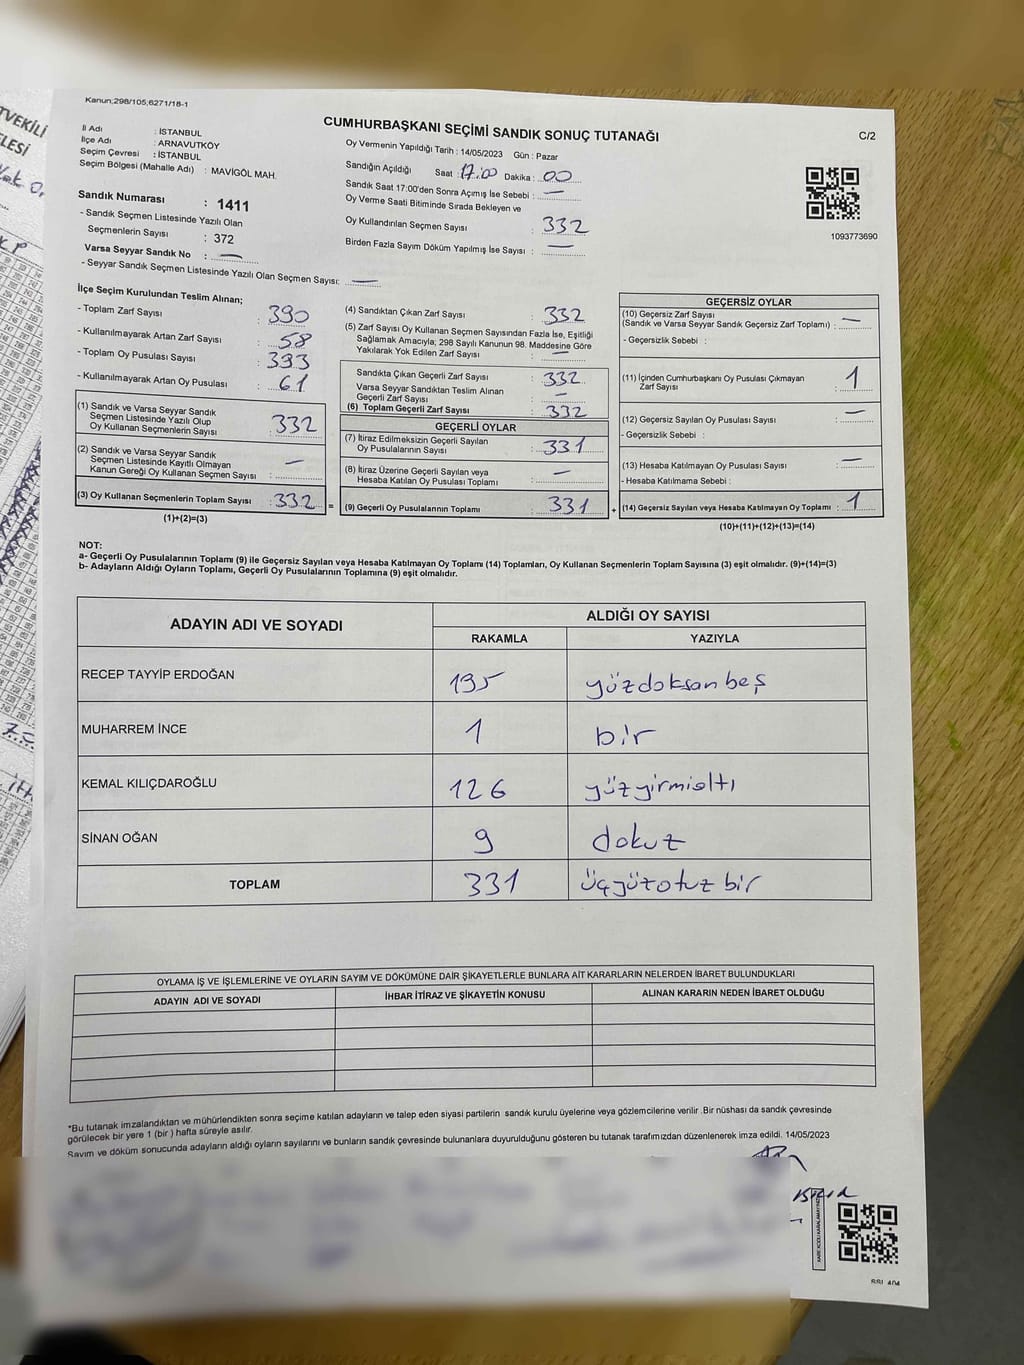 TVEKİLİ
ELESİ
Kanun;298/105;6271/18-1
CUMHURBAŞKANI SEÇİMİ SANDIK SONUÇ TUTANAĞI
C/2
İl Adı : İSTANBUL
İlçe Adı : ARNAVUTKÖY
Seçim Çevresi : İSTANBUL
Seçim Bölgesi (Mahalle Adı) : MAVİGÖL MAH.
Oy Vermenin Yapıldığı Tarih : 14/05/2023 Gün : Pazar
Sandığın Açıldığı Saat : 17:00 Dakika : 00
Sandık Saat 17:00'den Sonra Açımış İse Sebebi : —
Oy Verme Saati Bitiminde Sırada Bekleyen ve
Oy Kullandırılan Seçmen Sayısı : 332
Birden Fazla Sayım Döküm Yapılmış İse Sayısı : —
1093773690
Sandık Numarası : 1411
- Sandık Seçmen Listesinde Yazılı Olan
Seçmenlerin Sayısı : 372
Varsa Seyyar Sandık No : —
- Seyyar Sandık Seçmen Listesinde Yazılı Olan Seçmen Sayısı: —
İlçe Seçim Kurulundan Teslim Alınan;
- Toplam Zarf Sayısı : 390
- Kullanılmayarak Artan Zarf Sayısı : 58
- Toplam Oy Pusulası Sayısı : 393
- Kullanılmayarak Artan Oy Pusulası : 61
(1) Sandık ve Varsa Seyyar Sandık
Seçmen Listesinde Yazılı Olup
Oy Kullanan Seçmenlerin Sayısı : 332
(2) Sandık ve Varsa Seyyar Sandık
Seçmen Listesinde Kayıtlı Olmayan
Kanun Gereği Oy Kullanan Seçmen Sayısı : —
(3) Oy Kullanan Seçmenlerin Toplam Sayısı : 332 =
(1)+(2)=(3)
(4) Sandıktan Çıkan Zarf Sayısı : 332
(5) Zarf Sayısı Oy Kullanan Seçmen Sayısından Fazla İse, Eşitliği
Sağlamak Amacıyla; 298 Sayılı Kanunun 98. Maddesine Göre
Yakılarak Yok Edilen Zarf Sayısı : —
Sandıkta Çıkan Geçerli Zarf Sayısı : 332
Varsa Seyyar Sandıktan Teslim Alınan
Geçerli Zarf Sayısı : —
(6) Toplam Geçerli Zarf Sayısı : 332
GEÇERLİ OYLAR
(7) İtiraz Edilmeksizin Geçerli Sayılan
Oy Pusulalarının Sayısı : 331
(8) İtiraz Üzerine Geçerli Sayılan veya
Hesaba Katılan Oy Pusulası Toplamı : —
(9) Geçerli Oy Pusulalarının Toplamı : 331 +
GEÇERSİZ OYLAR
(10) Geçersiz Zarf Sayısı
(Sandık ve Varsa Seyyar Sandık Geçersiz Zarf Toplamı) : —
- Geçersizlik Sebebi :
(11) İçinden Cumhurbaşkanı Oy Pusulası Çıkmayan
Zarf Sayısı : 1
(12) Geçersiz Sayılan Oy Pusulası Sayısı : —
- Geçersizlik Sebebi :
(13) Hesaba Katılmayan Oy Pusulası Sayısı : —
- Hesaba Katılmama Sebebi :
(14) Geçersiz Sayılan veya Hesaba Katılmayan Oy Toplamı : 1
(10)+(11)+(12)+(13)=(14)
NOT:
a- Geçerli Oy Pusulalarının Toplamı (9) ile Geçersiz Sayılan veya Hesaba Katılmayan Oy Toplamı (14) Toplamları, Oy Kullanan Seçmenlerin Toplam Sayısına (3) eşit olmalıdır. (9)+(14)=(3)
b- Adayların Aldığı Oyların Toplamı, Geçerli Oy Pusulalarının Toplamına (9) eşit olmalıdır.
ADAYIN ADI VE SOYADI ALDIĞI OY SAYISI
RAKAMLA YAZIYLA
RECEP TAYYİP ERDOĞAN 195 yüzdoksan beş
MUHARREM İNCE 1 bir
KEMAL KILIÇDAROĞLU 126 yüzyirmialtı
SİNAN OĞAN 9 dokuz
TOPLAM 331 üçyüzotuz bir
OYLAMA İŞ VE İŞLEMLERİNE VE OYLARIN SAYIM VE DÖKÜMÜNE DAİR ŞİKAYETLERLE BUNLARA AİT KARARLARIN NELERDEN İBARET BULUNDUKLARI
ADAYIN ADI VE SOYADI İHBAR İTİRAZ VE ŞİKAYETİN KONUSU ALINAN KARARIN NEDEN İBARET OLDUĞU
*Bu tutanak imzalandıktan ve mühürlendikten sonra seçime katılan adayların ve talep eden siyasi partilerin sandık kurulu üyelerine veya gözlemcilerine verilir .Bir nüshası da sandık çevresinde
görülecek bir yere 1 (bir ) hafta süreyle asılır.
Sayım ve döküm sonucunda adayların aldığı oyların sayılarını ve bunların sandık çevresinde bulunanlara duyurulduğunu gösteren bu tutanak tarafımızdan düzenlenerek imza edildi. 14/05/2023